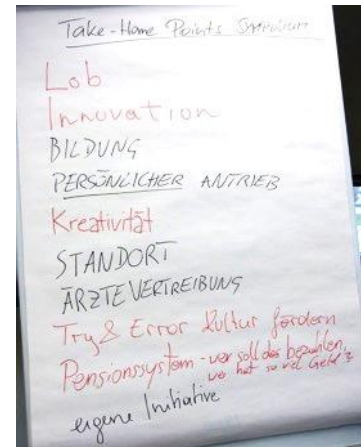 Take-Home Points Symposium
Lob
Innovation
BILDUNG
PERSÖNLICHER ANTRIEB
Kreativität
STANDORT
ÄRZTEVERTREIBUNG
Try & Error Kultur fördern
Pensionssystem - wer soll das bezahlen,
wer hat so viel Geld?
eigene Initiative